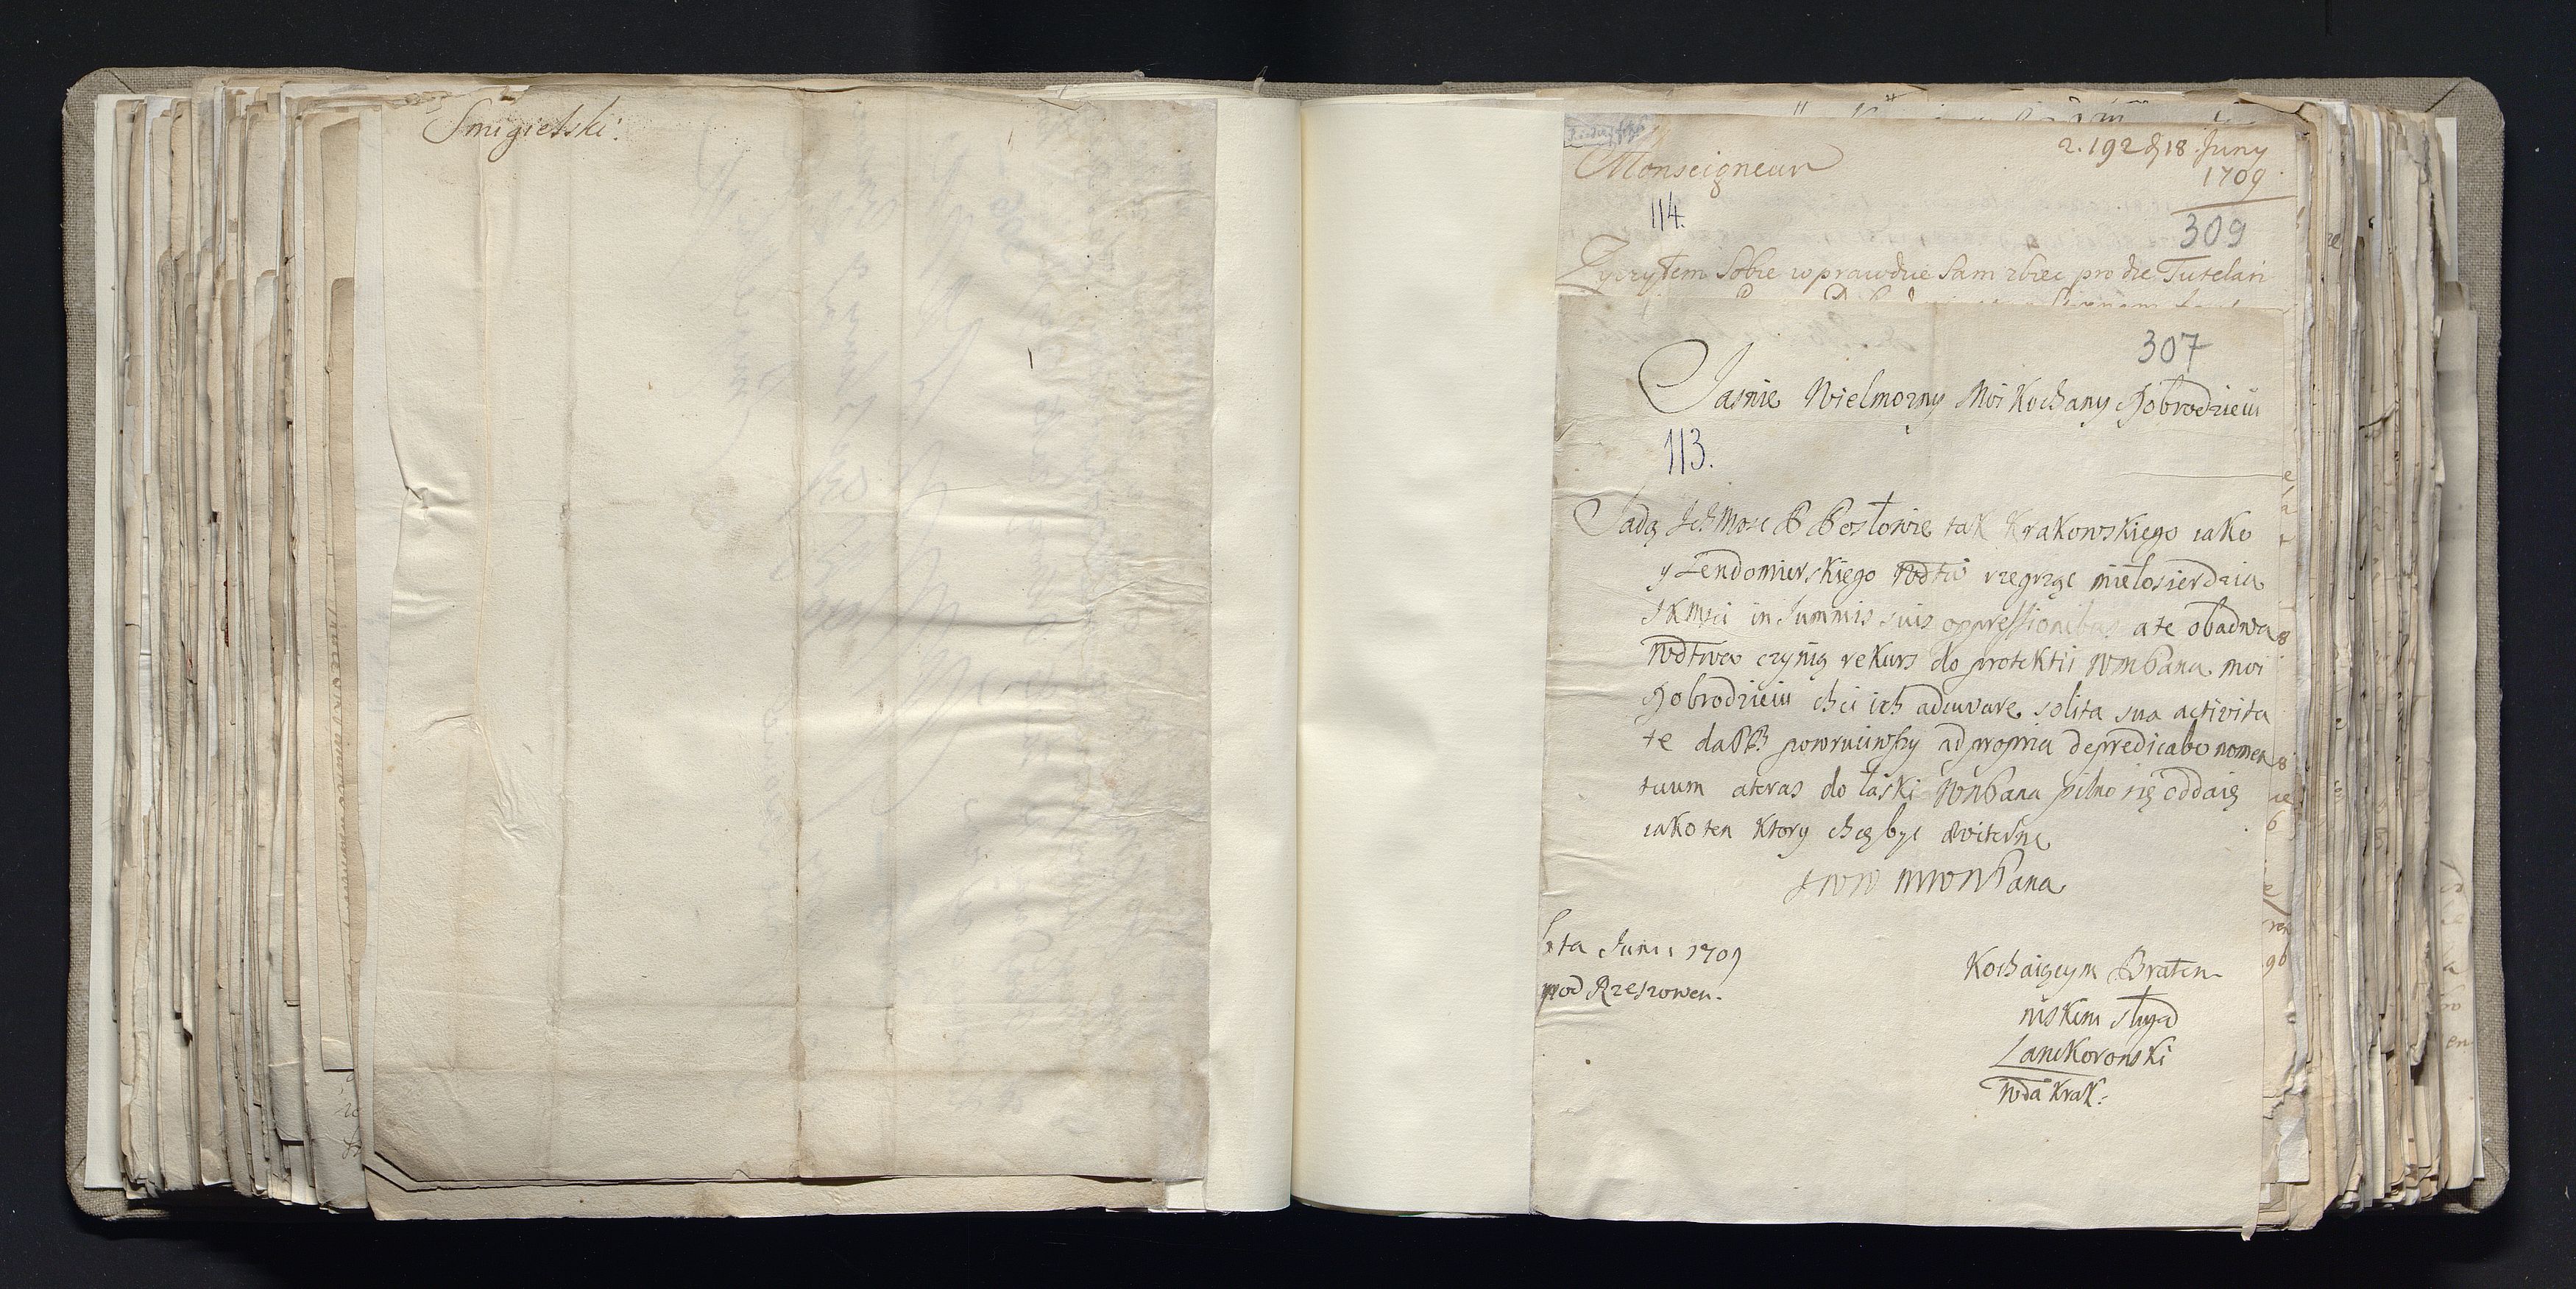 Smigielski.
2. 192 d 18 Juny
1709
Monseigneur
114.
309
Zyczyłem sobie wprawdzie sam zbiec pro die Tutelari
307
Jasnie Wielmozny Moi Kochany Dobrodzieiu
113.
Jadą IchMosc PP Posłowie tak Krakowskiego iako
y Sendomirskiego Wdtw zegrząc miełosierdzia
JKMsci in summis suis oppressionibus a że obadwa
Wdtwa czynią rekurs do protektii WMPana moi
Dobrodzieiu chci ich adiuvare solita sua activita
te da PB powruciwszy ad propria depredicabo nomen
tuum ateras do łaski WMPana pilno się oddaię
iako ten ktory chcę byc
JWW MMWMPana
ta Junii 1709
pod Rzeszowem.
Kochaiącym Bratem
niskim sługą
Lanckoronski
Wda Krak: